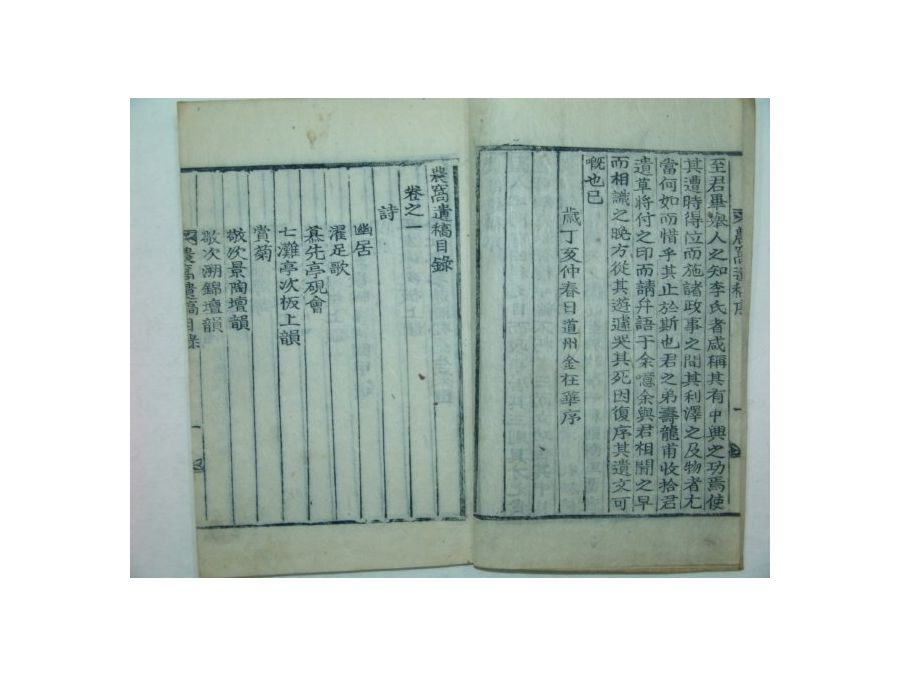 至君畢擧人之知李氏者咸稱其有中興之功焉使
其遭時得位而施諸政事之間其利澤之及物者尤
當何如而惜乎其止於斯也君之弟壽龍甫收拾君
遺草將付之印而請弁語于余噫余與君相聞之早
而相識之晚方從其遊遽哭其死因復序其遺文可
嘅也已
歲丁亥仲春日道州金在華序
農窩遺稿序
一
農窩遺稿目錄
卷之一
詩
幽居
濯足歌
慕先亭硯會
七灘亭次板上韻
賞菊
敬次景陶壇韻
敬次溯錦壇韻
農窩遺稿目錄
一